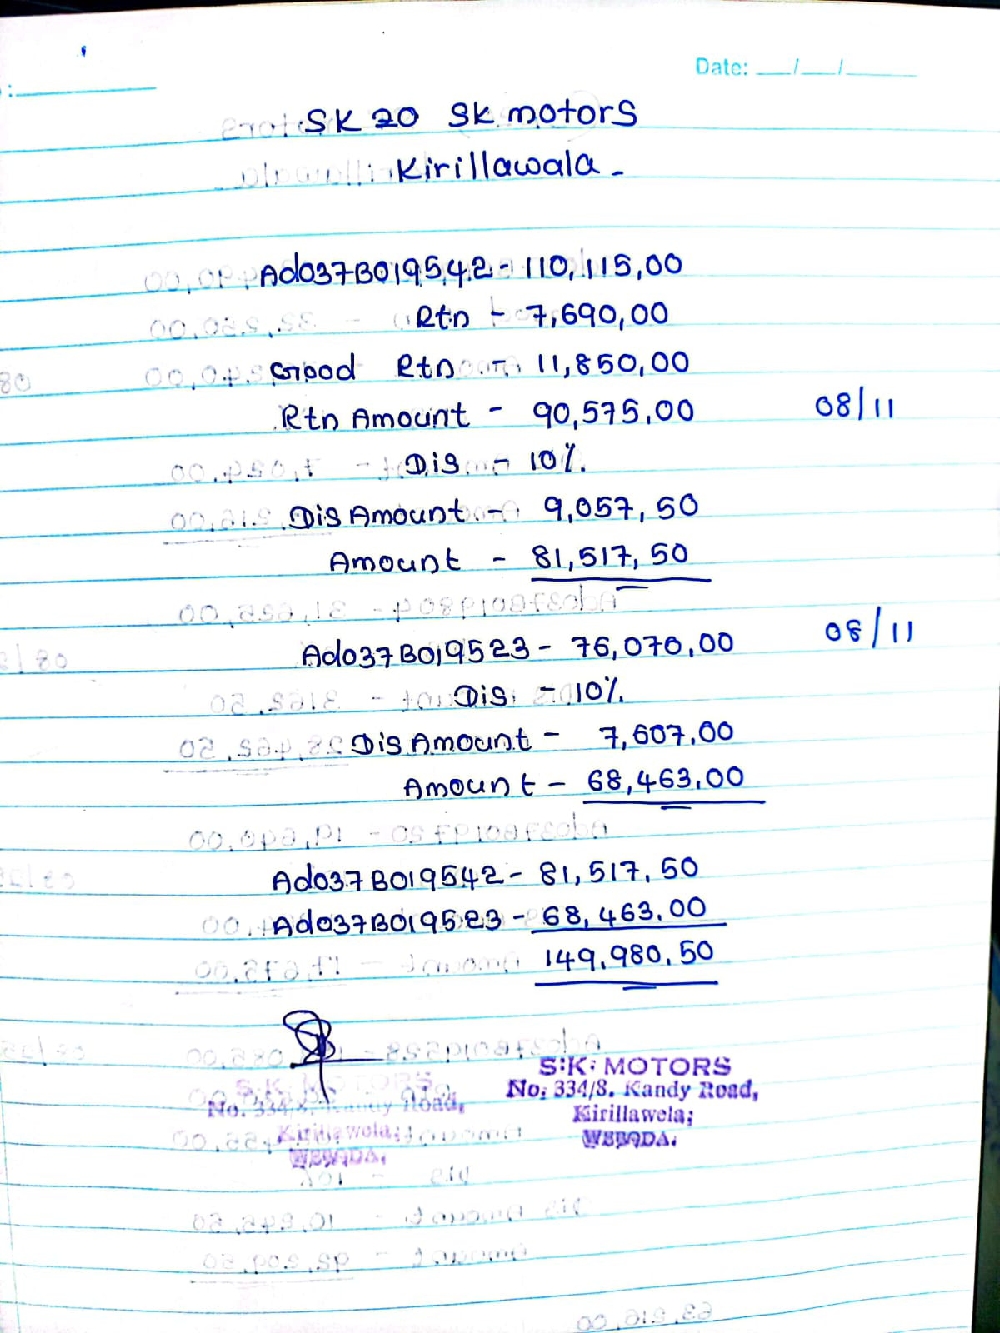 Date: __/__/____
SK 20 SK motors
Kirillawala -
Ado37B019542 - 110,115,00
Rtn - 7,690,00
Good Rtn - 11,850,00
Rtn Amount - 90,575,00 08/11
Dis - 10%.
Dis Amount - 9,057,50
Amount - 81,517,50
Ado37B019523 - 76,070,00 08/11
Dis - 10%.
Dis Amount - 7,607.00
Amount - 68,463.00
Ado37B019542 - 81,517.50
Ado37B019523 - 68,463.00
149,980.50
S.K. MOTORS
No. 334/8, Kandy Road,
Kirillawela,
WEBODA.
S.K. MOTORS
No: 334/8, Kandy Road,
Kirillawela;
WEBODA.